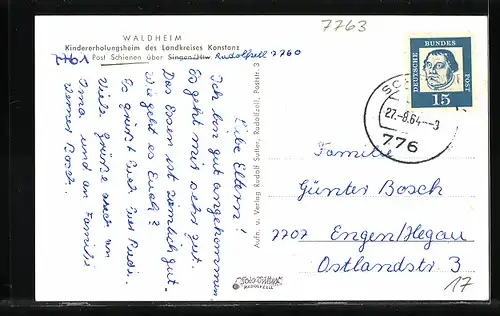 7763
WALDHEIM
Kindererholungsheim des Landkreises Konstanz
7761 Post Schienen über Singen/Htw. Radolfzell 7760
Liebe Eltern!
Ich bin gut angekommen.
Es geht mir sehr gut.
Das Essen ist ziemlich gut.
Wie geht es Euch?
Es grüßt Euch Eure
Viele Grüße auch an
Oma und an Familie
Werner Bosch.
Aufn. u. Verlag Rudolf Sutter, Radolfzell, Poststr. 3
RADOLFZELL
DEUTSCHE BUNDES POST
15
27.-8.64.-3
776
Familie
Günter Bosch
7707 Engen/Hegau
Ostlandstr. 3
17